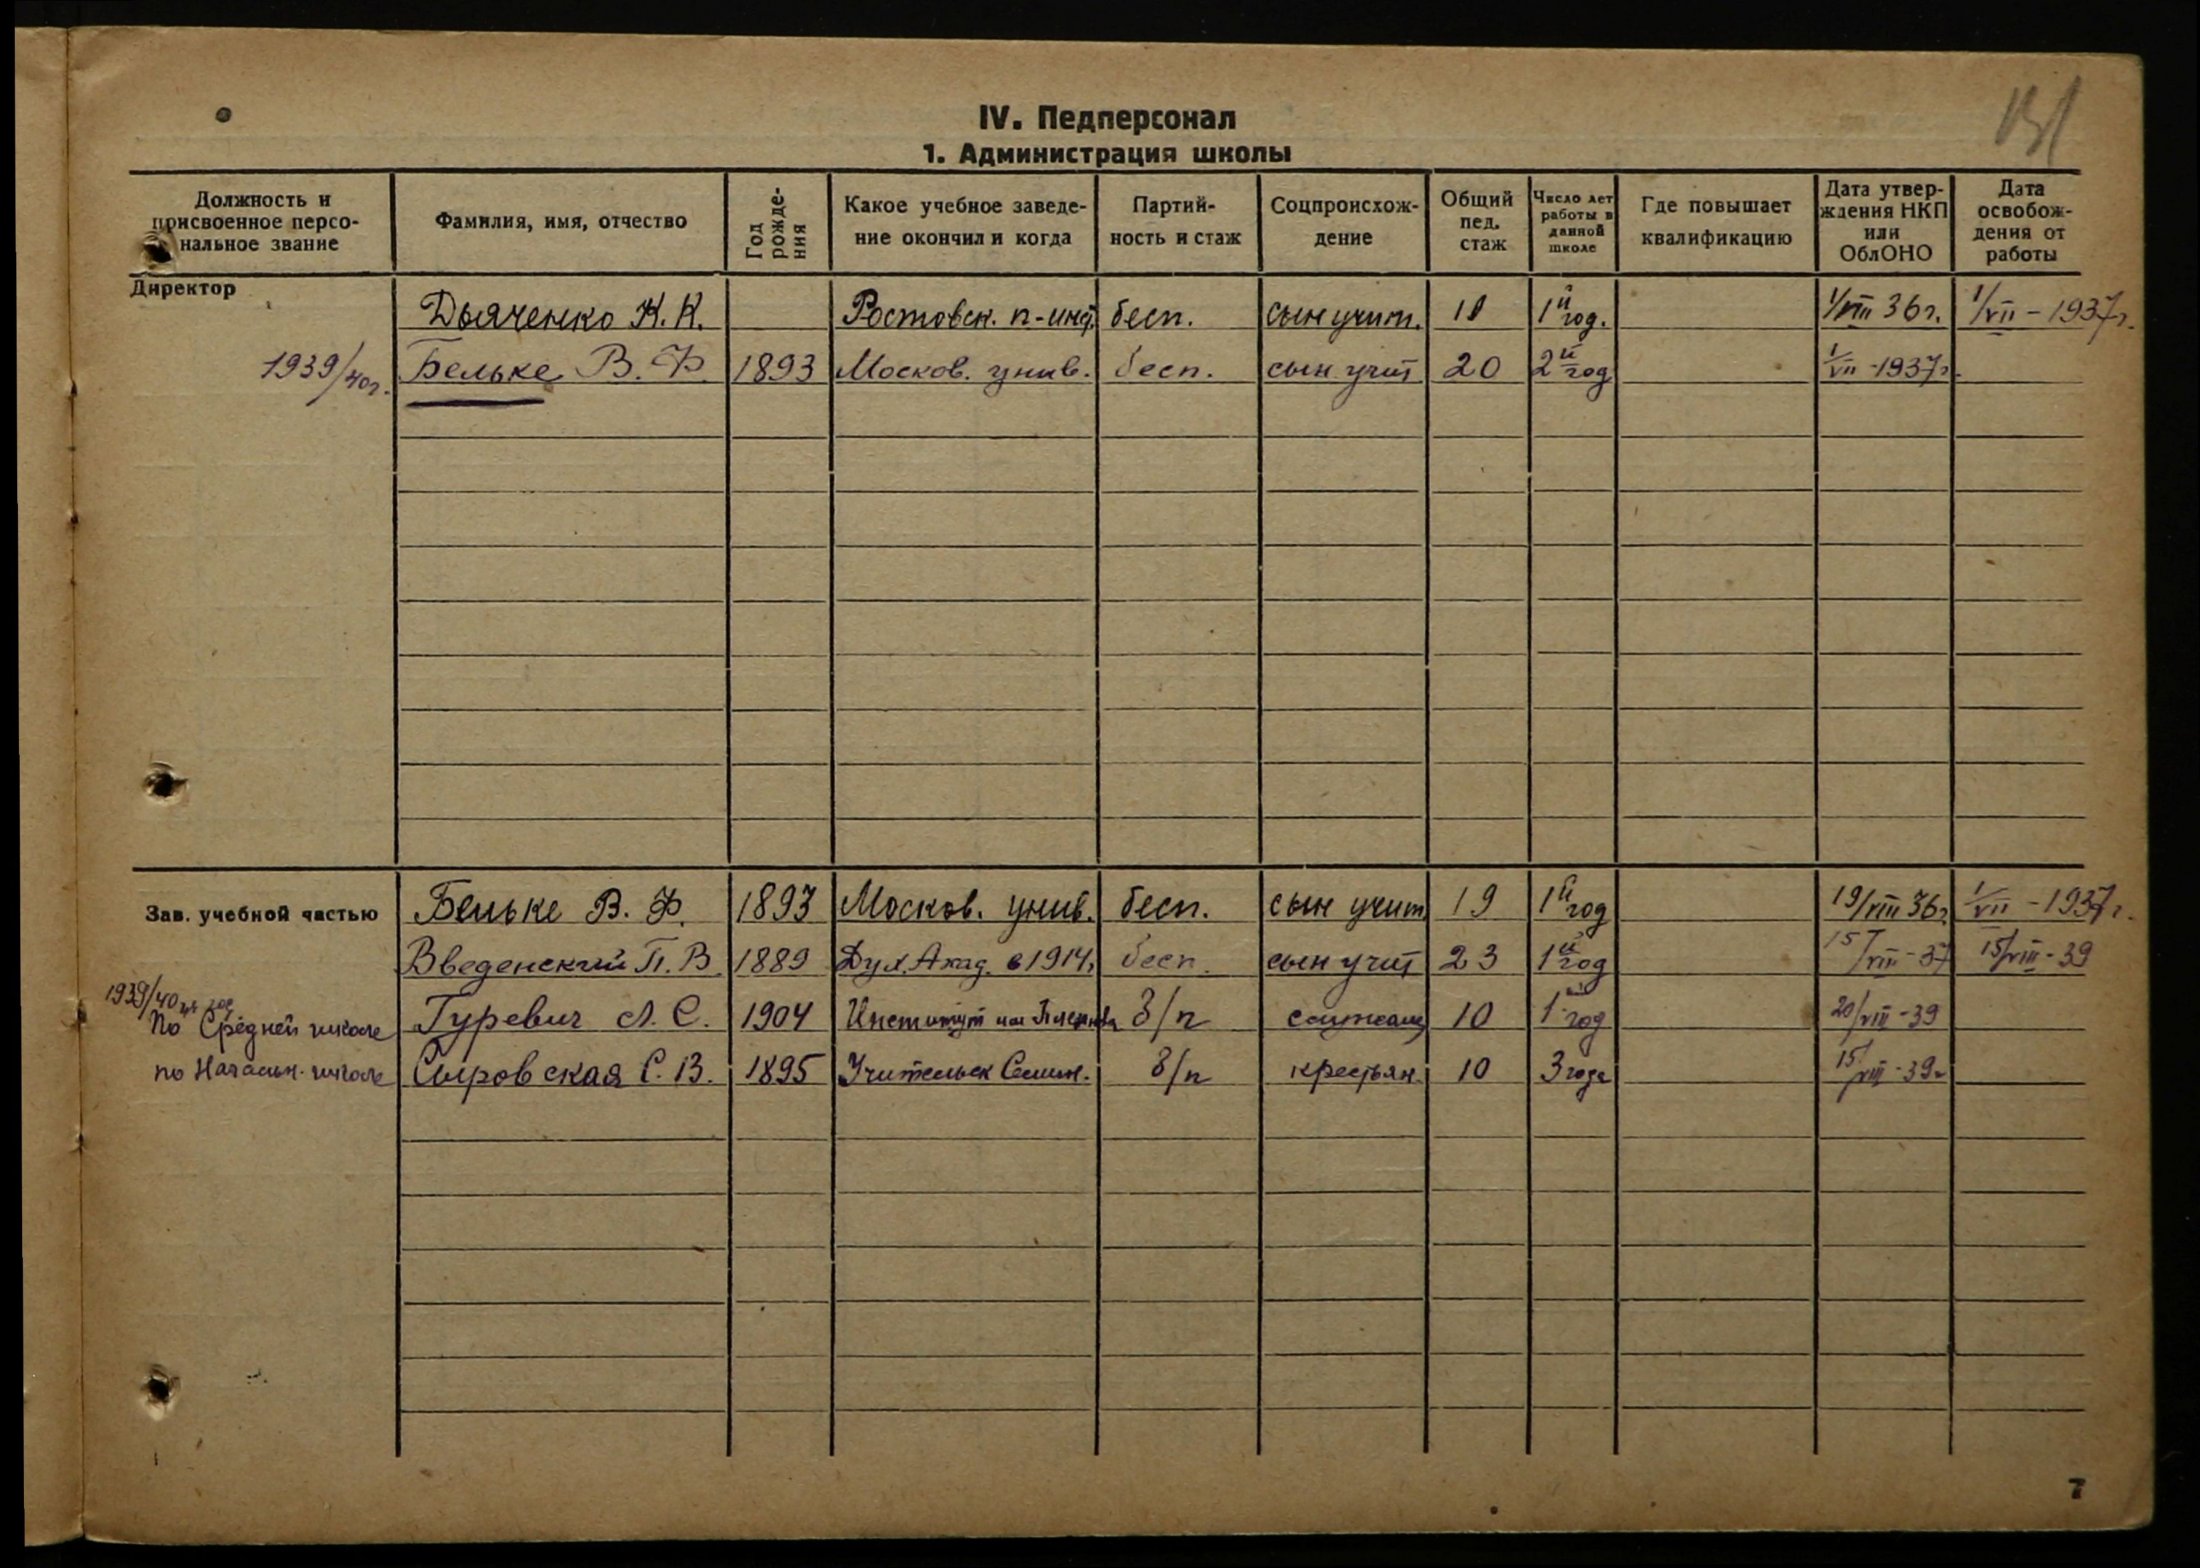 131
IV. Педперсонал
1. Администрация школы
Должность и присвоенное персональное звание | Фамилия, имя, отчество | Год рождения | Какое учебное заведение окончил и когда | Партийность и стаж | Соцпроисхождение | Общий пед. стаж | Число лет работы в данной школе | Где повышает квалификацию | Дата утверждения НКП или ОблОНО | Дата освобождения от работы
Директор
Дьяченко К. К. | Ростовск. п-инст. | бесп. | сын учит. | 11 | 1й год. | 1/VIII 36 г. | 1/VII - 1937 г.
1939/40 г. | Бельке В. Ф. | 1893 | Москов. унив. | бесп. | сын учит | 20 | 2й год | 1/VII - 1937 г.
Зав. учебной частью | Бельке В. Ф. | 1893 | Москов. унив. | бесп. | сын учит | 19 | 1й год | 19/VIII 36 г. | 1/VII - 1937 г.
Введенский П. В. | 1889 | Дух. Акад. в 1914 г. | бесп. | сын учит | 23 | 1й год | 15/VIII - 37 | 15/VIII - 39
1939/40
По Средней школе | Гуревич Л. С. | 1904 | Институт им Плеханова | б/п | служащ | 10 | 1 год | 20/VIII - 39
по Начальн. школе | Сыровская С. В. | 1895 | Учительск Семин. | б/п | крестьян. | 10 | 3 года | 15/VIII - 39 г
7